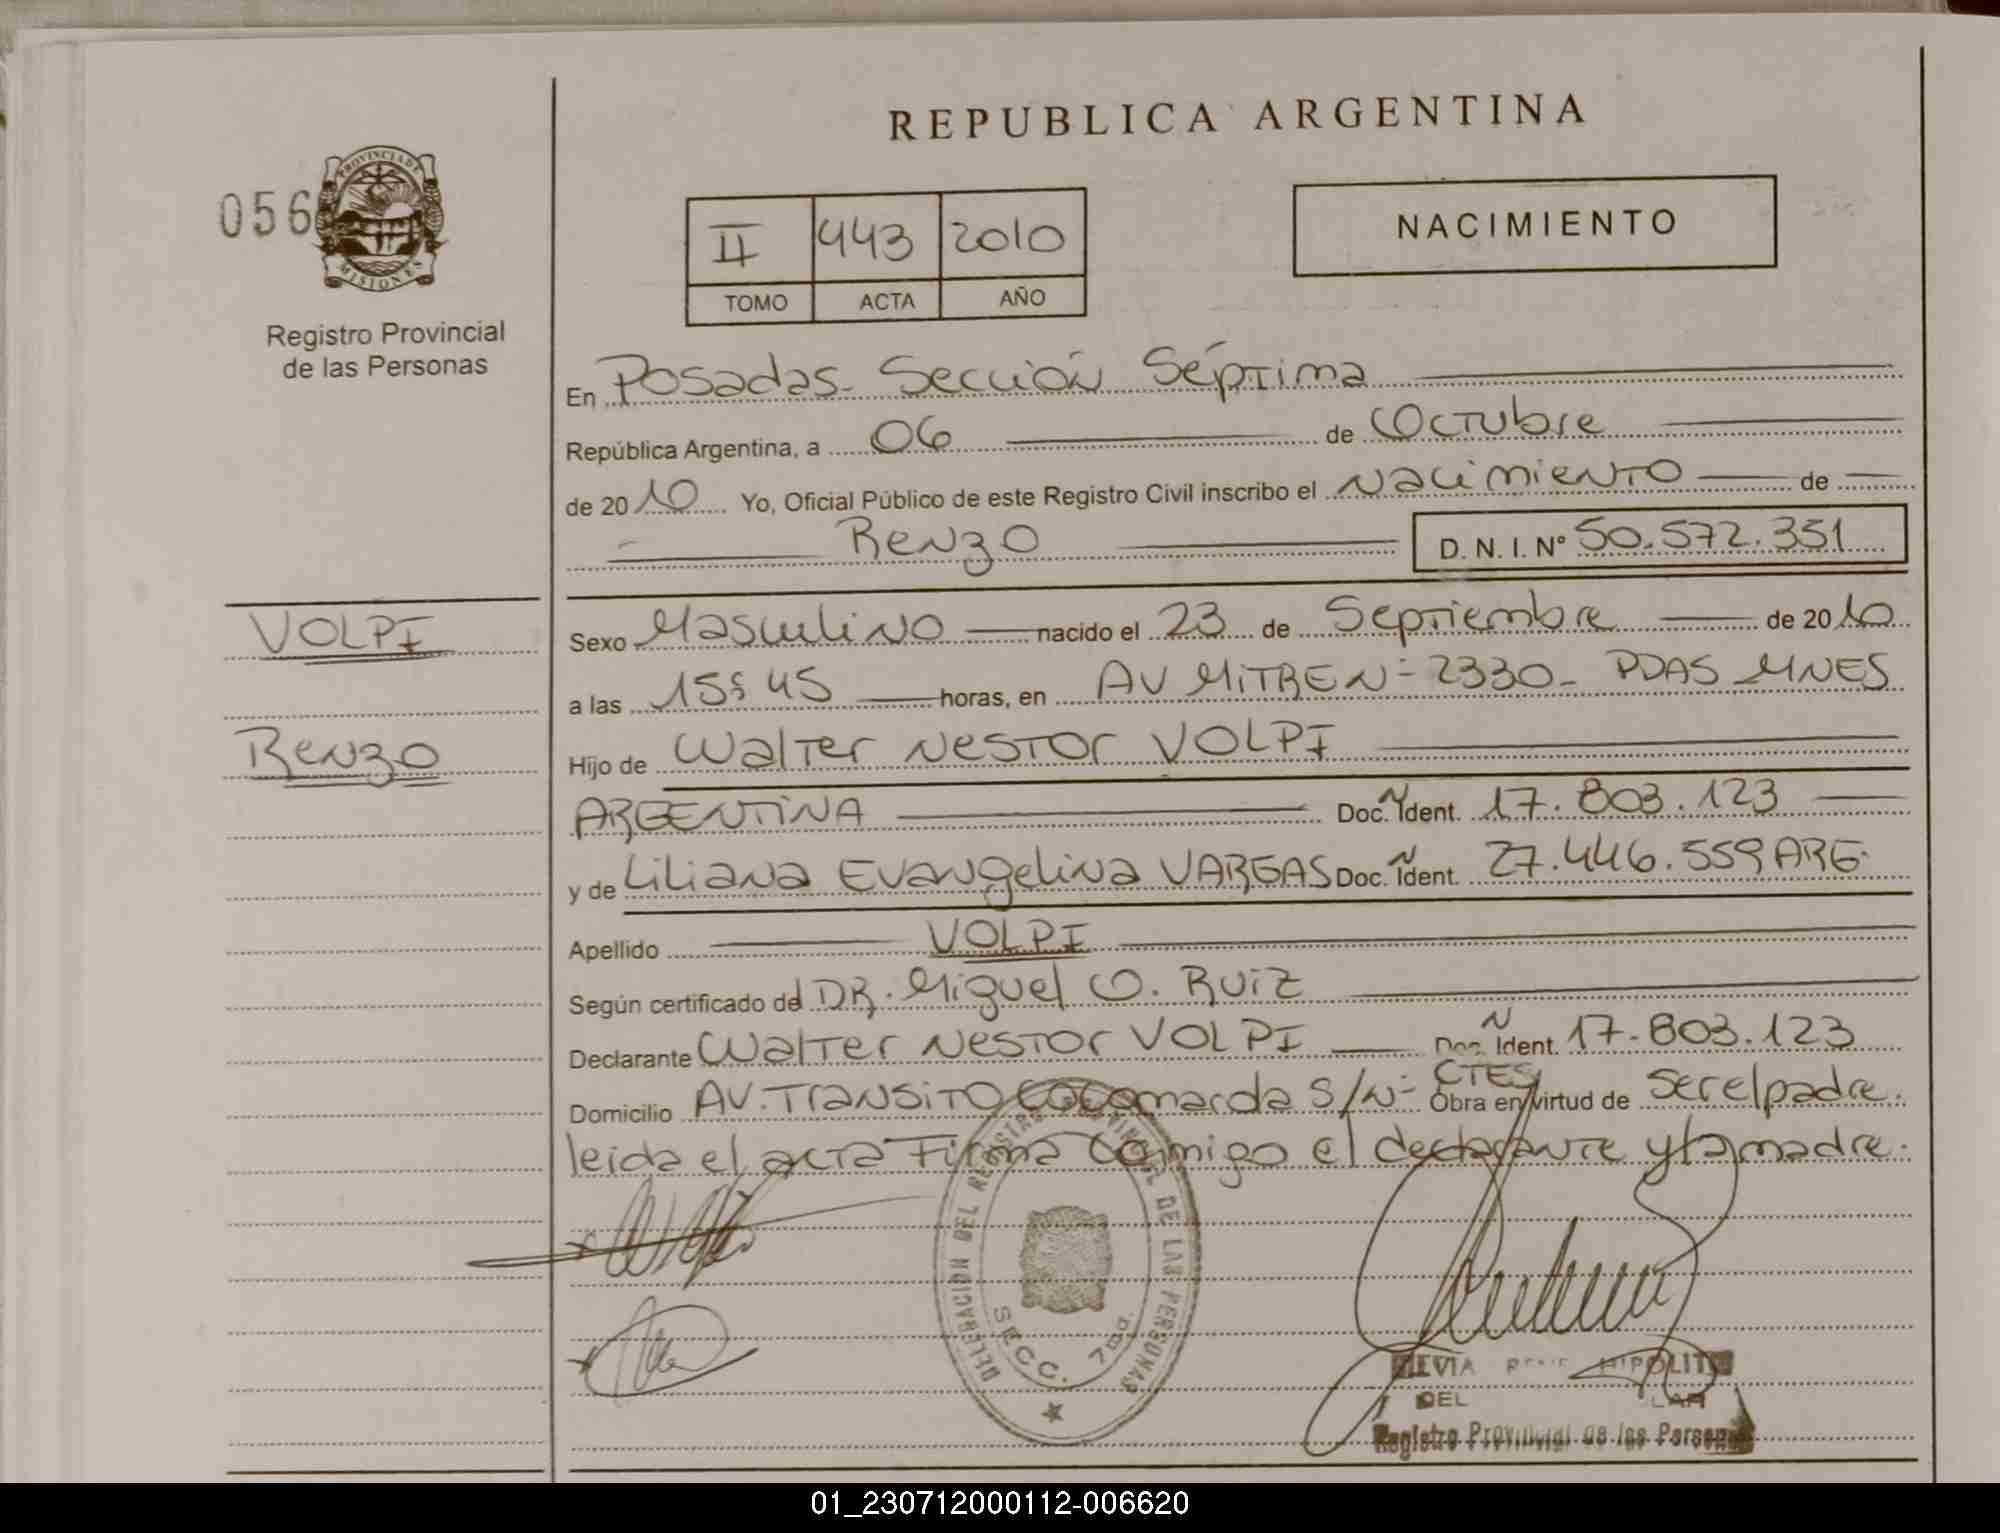 REPUBLICA ARGENTINA
056
PROVINCIA DE
MISIONES
Registro Provincial
de las Personas
II 443 2010
TOMO ACTA AÑO
NACIMIENTO
En Posadas - Sección Séptima
República Argentina, a 06 de Octubre
de 2010 Yo, Oficial Público de este Registro Civil inscribo el Nacimiento de
Renzo D. N. I. Nº 50.572.351
VOLPI
Renzo
Sexo Masculino nacido el 23 de Septiembre de 2010
a las 15:45 horas, en AV MITRE N- 2330- PDAS MNES
Hijo de Walter Nestor VOLPI
ARGENTINA Doc. Ident. 17.803.123
y de Liliana Evangelina VARGAS Doc. Ident. 27.446.559 ARG.
Apellido VOLPI
Según certificado del DR. Miguel O. Ruiz
Declarante Walter Nestor VOLPI Doc. Ident. 17.803.123
Domicilio AV. Transito Cocomarola S/N- CTES Obra en virtud de ser el padre.
leida el acta Firma conmigo el declarante y la madre.
DELEGACION DEL REGISTRO PROVINCIAL DE LAS PERSONAS
SECC. 7ma.
HIPOLITO
DEL
Registro Provincial de las Personas
01_230712000112-006620